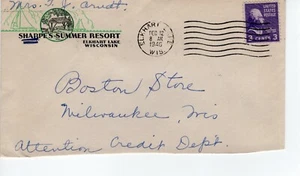 Mrs. F. J. Arndt.
SHARPE'S SUMMER RESORT
ELKHART LAKE
WISCONSIN
ELKHART LAKE
DEC 12
8 AM
1946
WIS.
UNITED STATES POSTAGE
3 CENTS 3
Boston Store
Milwaukee, Wis
Attention Credit Dept.